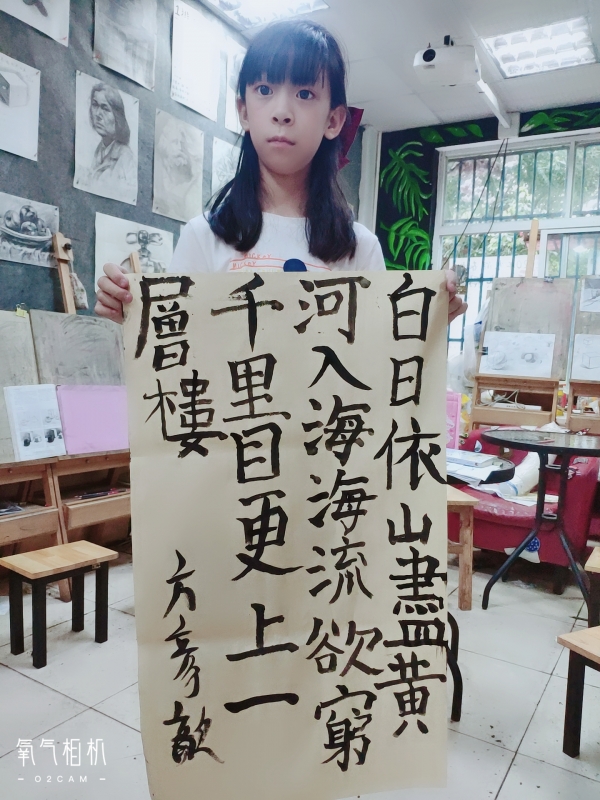 白日依山盡黃
河入海海流欲窮
千里目更上一
層樓
方彦歆
氧气相机
- O2CAM -